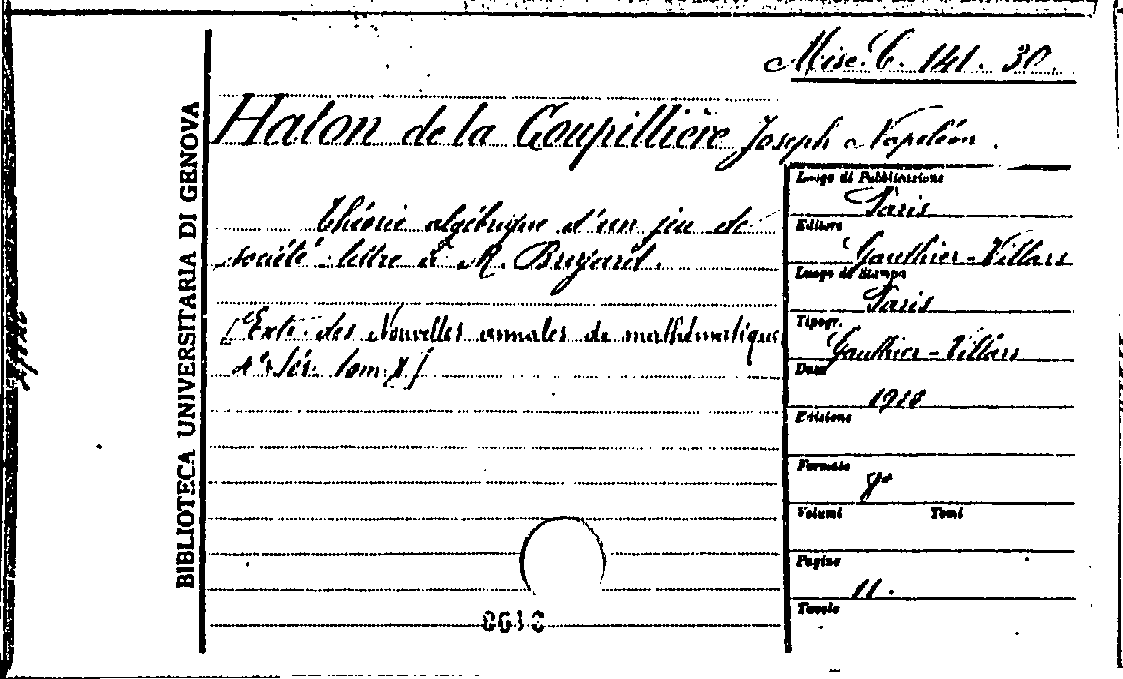 Misc. C. 141. 30.
Haton de la Goupillière Joseph Napoléon.
BIBLIOTECA UNIVERSITARIA DI GENOVA
Théorie algébrique d'un jeu de
société: lettre à M.
[Extr. des Nouvelles annales de mathématique
4e. sér. tom. X]
Luogo di Pubblicazione
Paris
Editore
Gauthier-Villars
Luogo di Stampa
Paris
Tipogr.
Gauthier-Villars
Data
1910
Edizione
Formato
8°
Volumi Tomi
Pagine
11.
Tavole